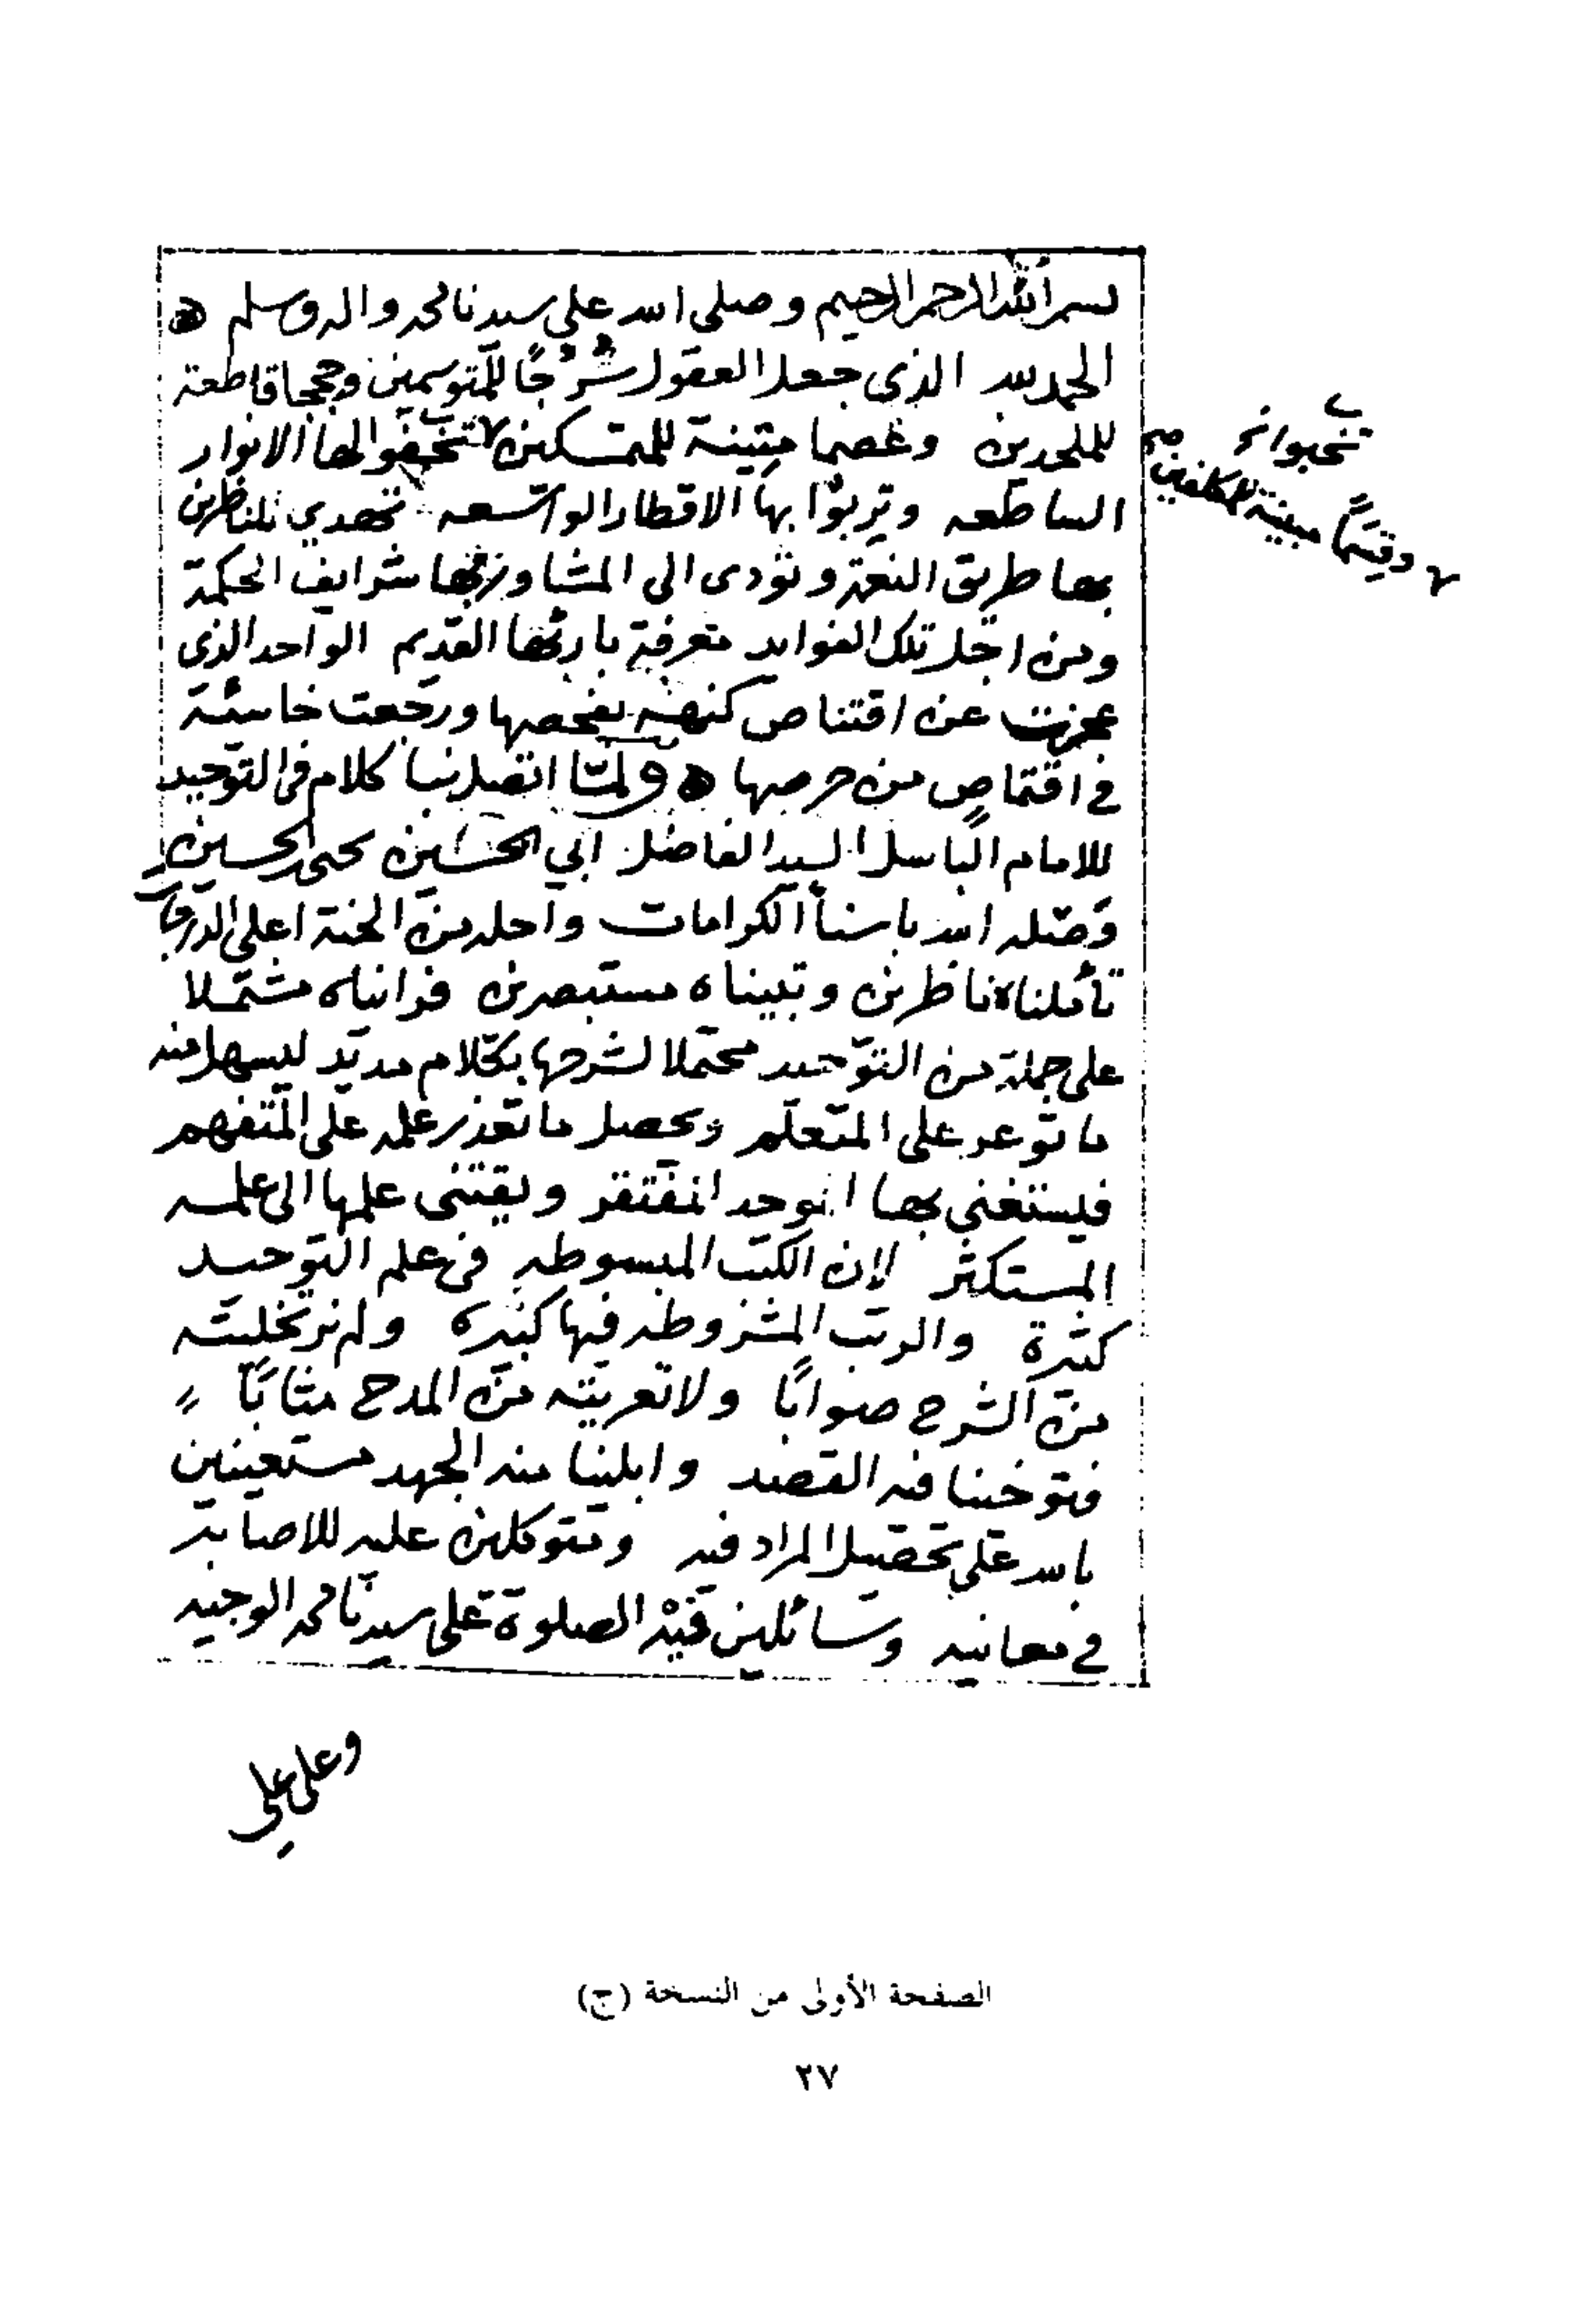 بسم الله الرحمن الرحيم وصلى الله على سيدنا محمد واله وسلم ه
الحمد لله الذي جعل العقول سُرُجًا للمتوسمين وحججا قاطعة
للملحدين وعصما متينة للمتمسكين لها الانوار
الساطعه وتربوا بها الاقطار الواسعه تهدي للناظرين
بها طريق النعمة وتؤدى الى شرايف الحكمة
ومن اجل تلك الفوايد معرفة بارئها القديم الواحد الذي
عجزت عن اقتناص كنهه بفحصها ورجعت خاسئة
في اقتماص من حرصها ه ولما اتصل بنا كلام في التوحيد
للامام الباسل السيد الفاضل ابي الحسين يحيى بن الحسين
وصله الله باسنا الكرامات واحله من الجنة اعلى الدرجات
تأملناه ناظرين وتبيناه مستبصرين فرايناه مشتملا
على جملة من التوحيد محتملا لشرحها بكلام مديد ليسهل منه
ما توعر على المتعلم ويحصل ما تعذر علمه على المتفهم
فيستغني بها الموحد المفتقر ويقتنى علمها الى علمه
المستكثر لان الكتب المبسوطه في علم التوحيد
كثيرة والرتب المشروطه فيها كبيره ولم نر تخليته
من الشرح صوابًا ولا تعريته من المدح مثابًا
فتوخينا فيه القصد وابلينا منه الجهد مستعينين
بالله على تحصيل المراد فيه ومتوكلين عليه للاصابة
في معانيه وسائلين فيه الصلوة على سيدنا محمد الوجيه
وعلى علي
الصفحة الأولى من النسخة (ج)
٢٧